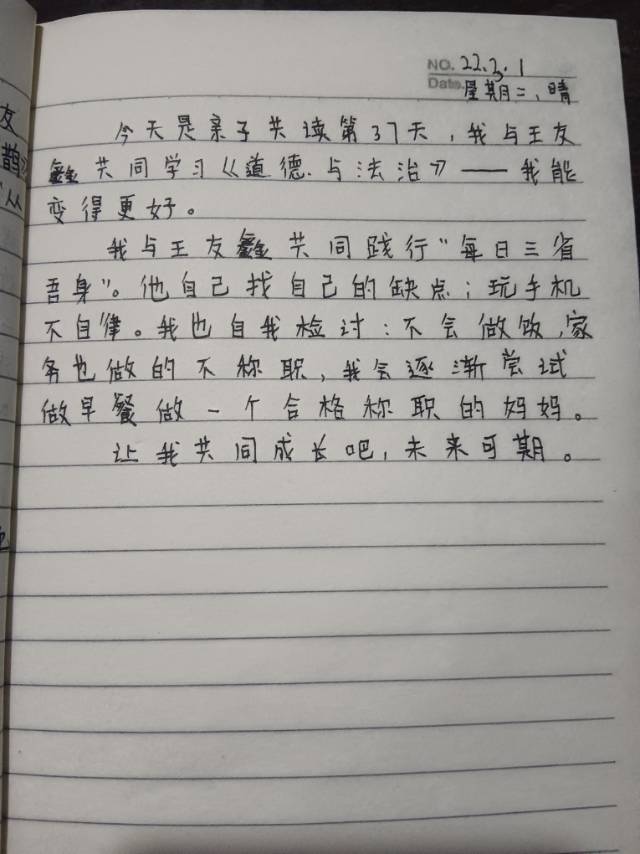 友
鹊
从
NO. 22.3.1
Date 星期二,晴
今天是亲子共读第37天,我与王友
鑫共同学习《道德与法治》——我能
变得更好。
我与王友鑫共同践行“每日三省
吾身”。他自己找自己的缺点;玩手机
不自律。我也自我检讨:不会做饭,家
务也做的不称职,我会逐渐尝试
做早餐做一个合格称职的妈妈。
让我共同成长吧,未来可期。